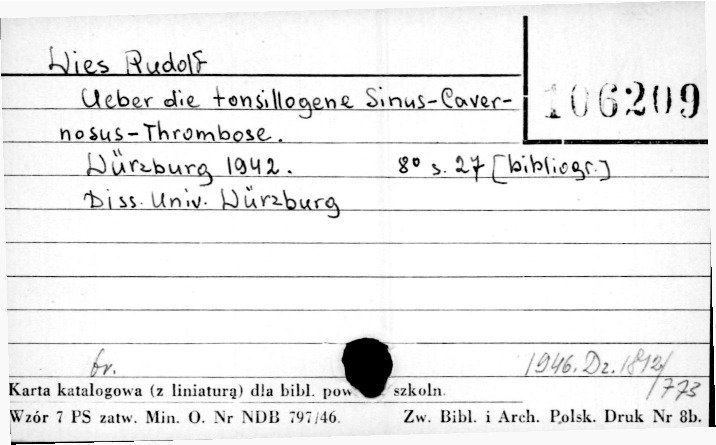 Wies Rudolf
106209
Ueber die tonsillogene Sinus-Caver-
nosus-Thrombose.
Würzburg 1942. 8° s. 27 [bibliogr.]
Diss. Univ. Würzburg
br. 1946. Dz. 1812/
/773
Karta katalogowa (z liniaturą) dla bibl. pow szkoln.
Wzór 7 PS zatw. Min. O. Nr NDB 797/46. Zw. Bibl. i Arch. Polsk. Druk Nr 8b.